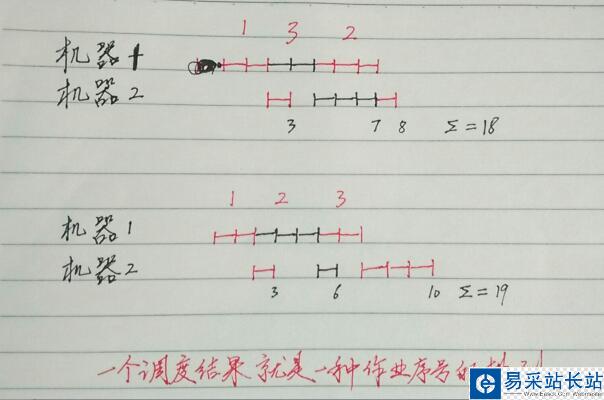 1 3 2
机器1
机器2
3 7 8 Σ=18
1 2 3
机器1
机器2
3 6 10 Σ=19
一个调度结果就是一种作业序号的排列
易采站长站
Www.Easck.Com Webmaster